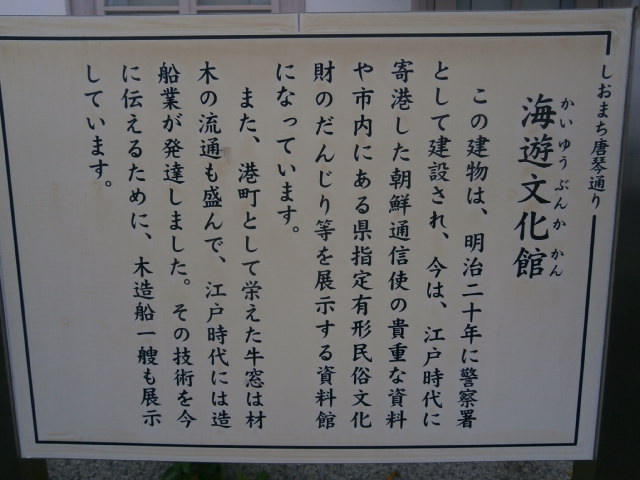 しおまち唐琴通り
かいゆうぶんかかん
海遊文化館
この建物は、明治二十年に警察署
として建設され、今は、江戸時代に
寄港した朝鮮通信使の貴重な資料
や市内にある県指定有形民俗文化
財のだんじり等を展示する資料館
になっています。
また、港町として栄えた牛窓は材
木の流通も盛んで、江戸時代には造
船業が発達しました。その技術を今
に伝えるために、木造船一艘も展示
しています。